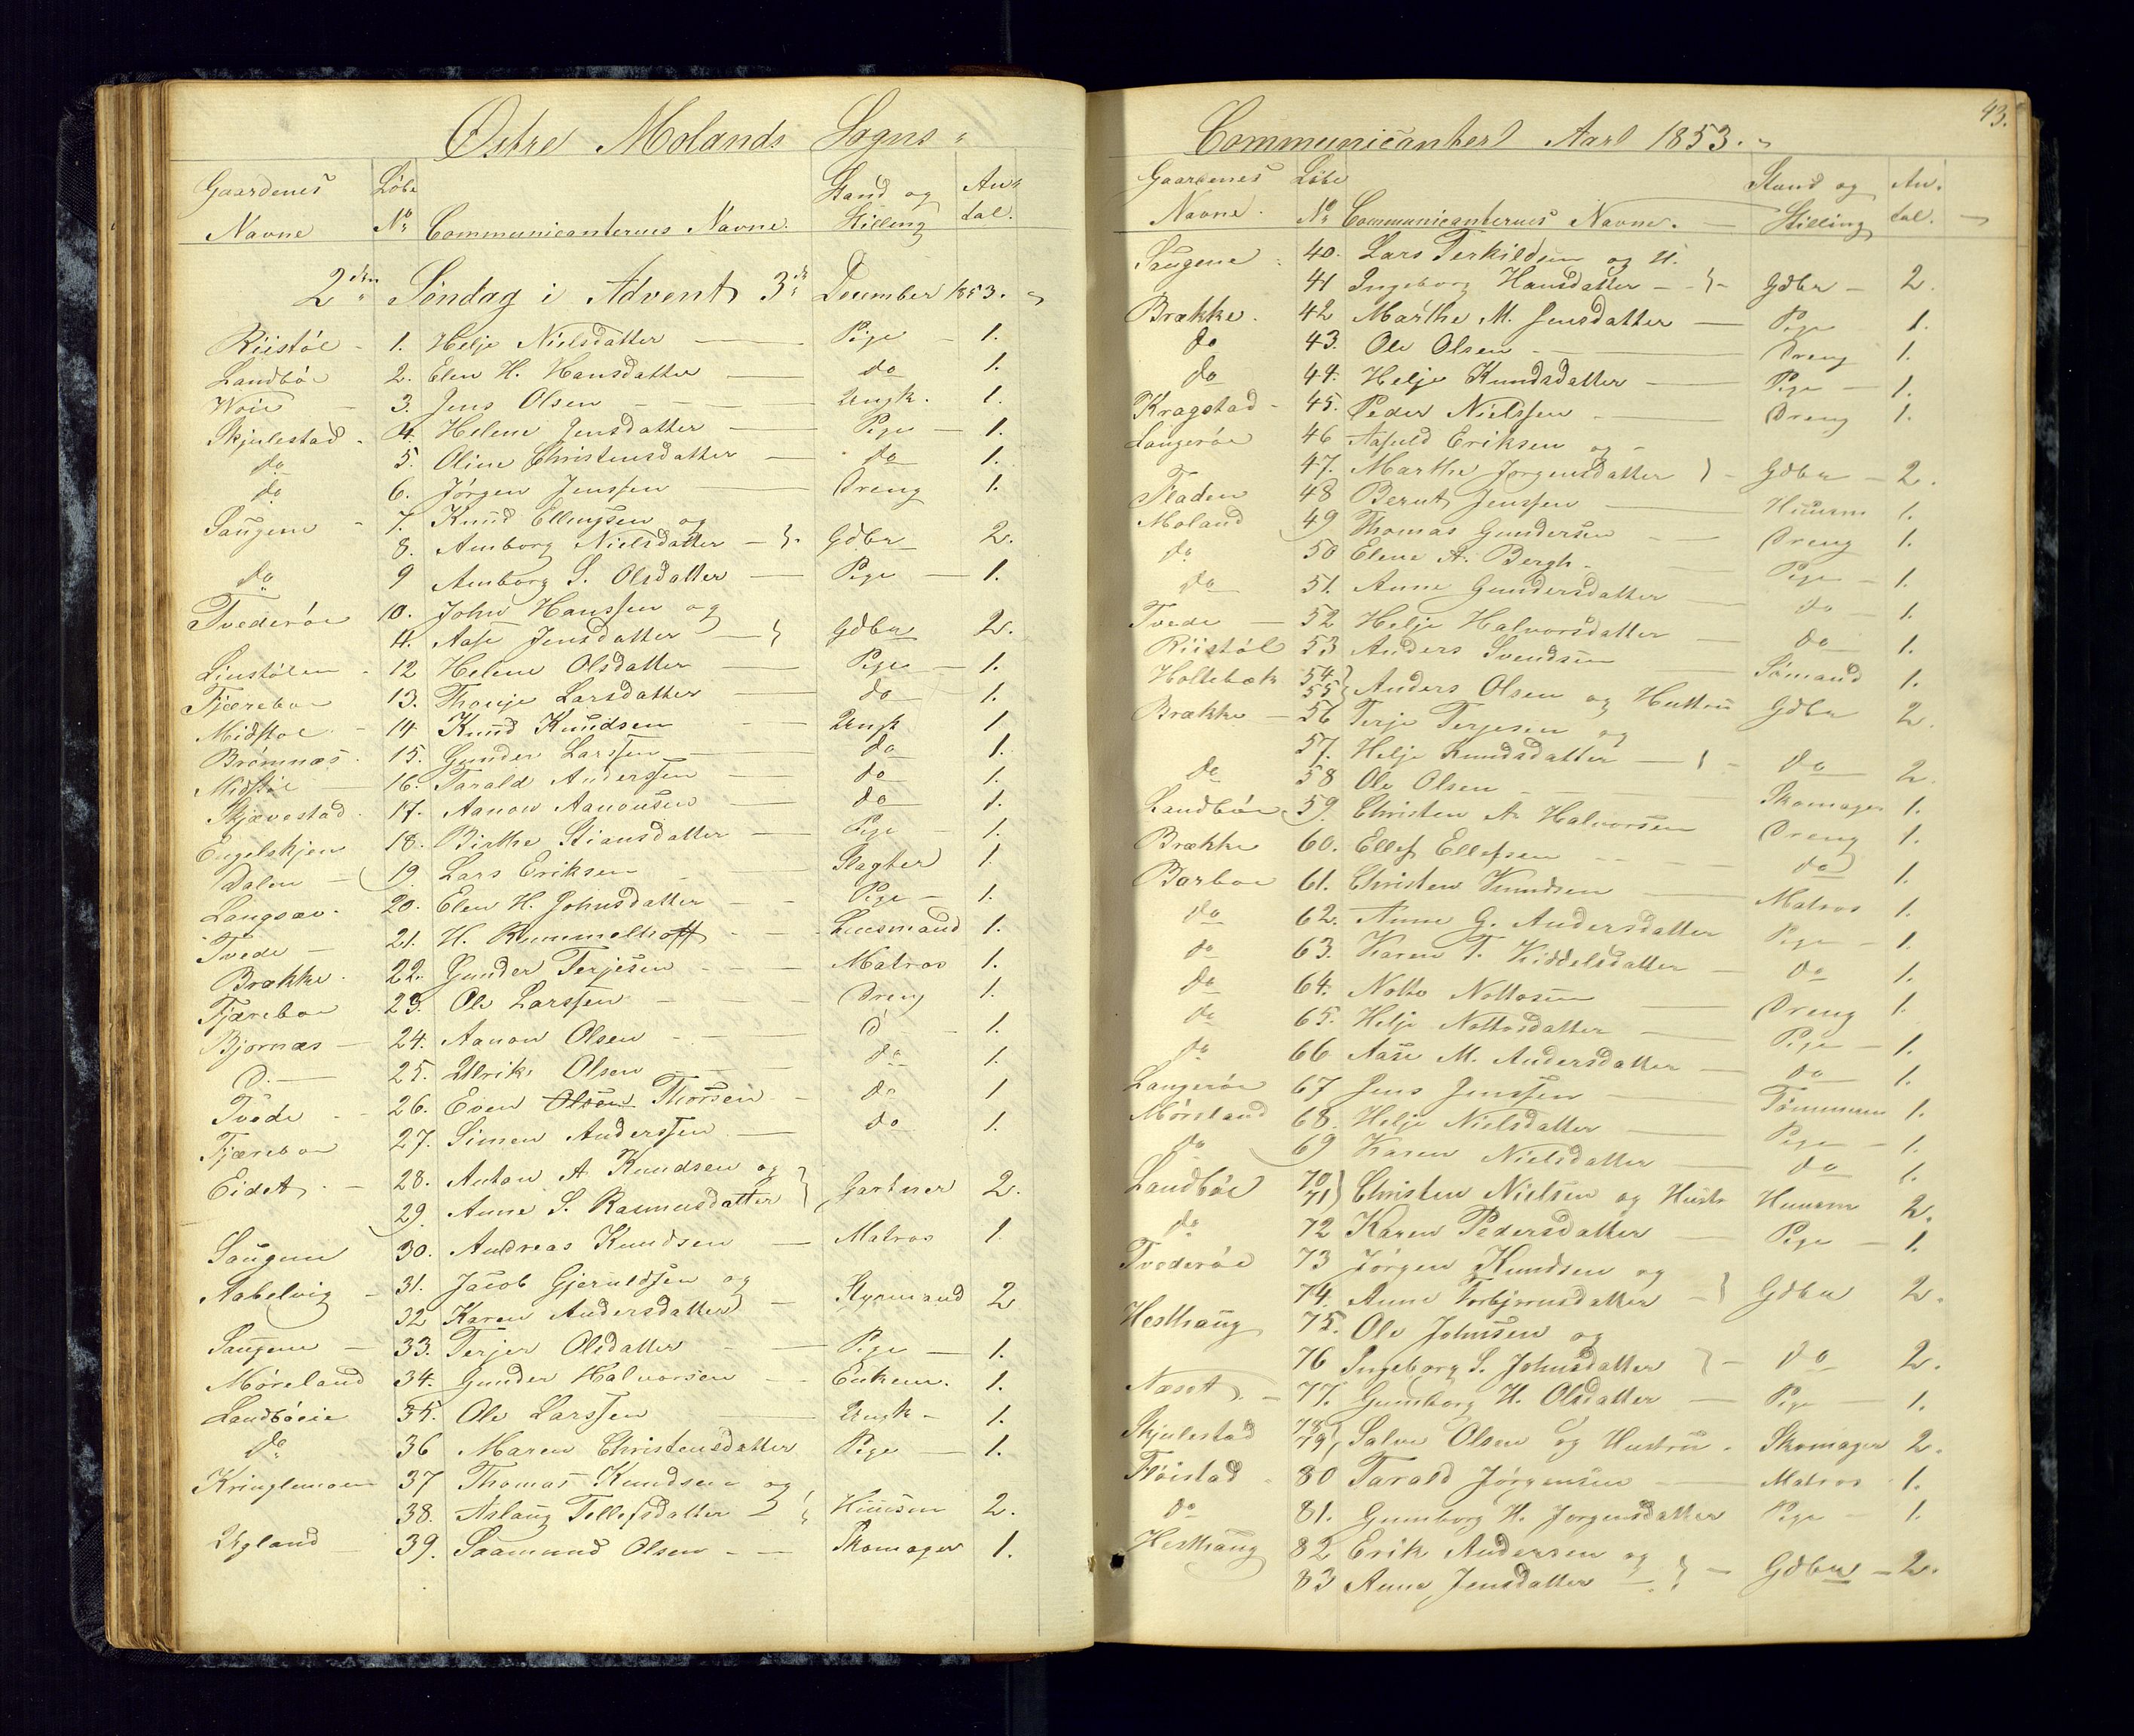 Østre Molands Sogns
Gaardenes Løbe Stand og An-
Navne No Communicanternes Navne. Stilling tal.
2den Søndag i Advent 3de December 1853.
Riistøl - 1. Helje Nielsdatter Pige 1.
Landbøe 2. Elen H. Hansdatter do 1.
Woie 3. Jens Olsen Ungk. 1.
Skjulestad 4. Helene Jensdatter Pige 1.
do 5. Oline Christensdatter do 1.
do 6. Jørgen Jenssen Dreng 1.
Saugene 7. Knud Ellingsen og
8. Amborg Nielsdatter Gdbr 2.
do 9 Amborg S. Olsdatter Pige 1.
Tvederøe 10. John Hanssen og
11. Aase Jensdatter Gdbr 2.
Linstølen 12 Helene Olsdatter Pige 1.
Fjæreboe 13. Thonje Larsdatter do 1.
Midstøe 14 Knud Knudsen Ungk 1
Brømnæs 15. Gunder Larssen do 1.
Midstøe 16. Tarald Anderssen do 1.
Skjævestad 17. Aanon Aanonsen do 1.
Engelskjen 18. Birthe Stiansdatter Pige 1.
Dalen 19. Lars Eriksen Slagter 1.
Langsæv. 20. Elen H. Johnsdatter Pige 1.
Tvede 21. H. Rummelhoff Lensmand 1.
Brække 22. Gunder Terjesen Matros 1.
Fjæreboe 23. Ole Larssen Dreng 1.
Bjornæs 24. Aanon Olsen d 1.
D. 25. Ulrik Olsen do 1.
Tvede 26. Even Olsen Thorsen do 1
Fjæreboe 27. Simen Anderssen do 1.
Eidet 28. Anton A Knudsen og
29. Anne S. Rasmusdatter Gartner 2.
Saugene 30. Andreas Knudsen Matros 1
Aabelvig 31. Jacob Gjeruldsen og
32 Karen Andersdatter Styrmand 2
Saugene 33. Terjer Olsdatter Pige 1.
Møreland 34. Gunder Halvorsen Enkem. 1.
Landbøeie 35. Ole Larssen Ungk 1.
do 36 Maren Christensdatter Pige 1.
Kringlemoen 37 Thomas Knudsen og
38. Aslaug Tellefsdatter Huusm 2.
Ugland 39. Saamund Olsen Skomager 1.
43.
Communicanter Aar 1853.
Gaardenes Løbe Stand og An-
Navne. No Communicanternes Navne. Stilling tal.
Saugene 40. Lars Terkildsen og H.
41 Ingeborg Hansdatter Gdbr 2.
Brække. 42 Marthe M. Jensdatter Pige 1.
do 43. Ole Olsen Dreng 1.
do 44. Helje Knudsdatter Pige 1.
Kragstad 45. Peder Nielssen Dreng 1.
Langerøe 46 Aasuld Eriksen og
47. Marthe Jørgensdatter Gdbr 2.
Fladen 48 Bernt Jenssen Huusm 1.
Moland 49 Thomas Gundersen Dreng 1.
do 50 Elene A. Bergh Pige 1.
do 51. Anne Gundersdatter do 1.
Tvede 52 Helje Halvorsdatter do 1.
Riistøl 53 Anders Svendsen Sømand 1.
Holtebæk 54 55 Anders Olsen og Hustru Gdbr 2.
Brække 56 Terje Terjesen og
57. Helje Knudsdatter do 2.
do 58 Ole Olsen Skomager 1.
Landbøe 59. Christen A. Halvorsen Dreng 1.
Brække 60. Ellef Ellefsen do 1.
Barboe 61. Christen Knudsen Matros 1.
do 62. Anne G. Andersdatter Pige 1.
do 63. Karen T. Kiddelsdatter do 1.
do 64. Notto Nottosen Dreng 1.
do 65. Helje Nottosdatter Pige 1.
do 66 Aase M. Andersdatter do 1.
Langerøe 67 Jens Jenssen Tømmerm 1.
Møreland 68. Helje Nielsdatter Pige 1.
do 69 Karen Nielsdatter do 1.
Landbøe 70 71 Christen Nielsen og Hustr Huusm 2.
do 72 Karen Pedersdatter Pige 1.
Tvederøe 73 Jørgen Knudsen og
74. Anne Torbjornsdatter Gdbr 2.
Hesthaug 75. Ole Johnsen og
76 Ingeborg S. Johnsdatter do 2.
Næset 77. Gunborg H. Olsdatter Pige 1.
Skjulestad 78 79 Salve Olsen og Hustru. Skomager 2.
Frøistad 80 Tarald Jørgensen Matros 1.
do 81. Gunborg H. Jørgensdatter Pige 1.
Hesthaug 82 Erik Andersen og
83 Anne Jensdatter Gdbr 2.